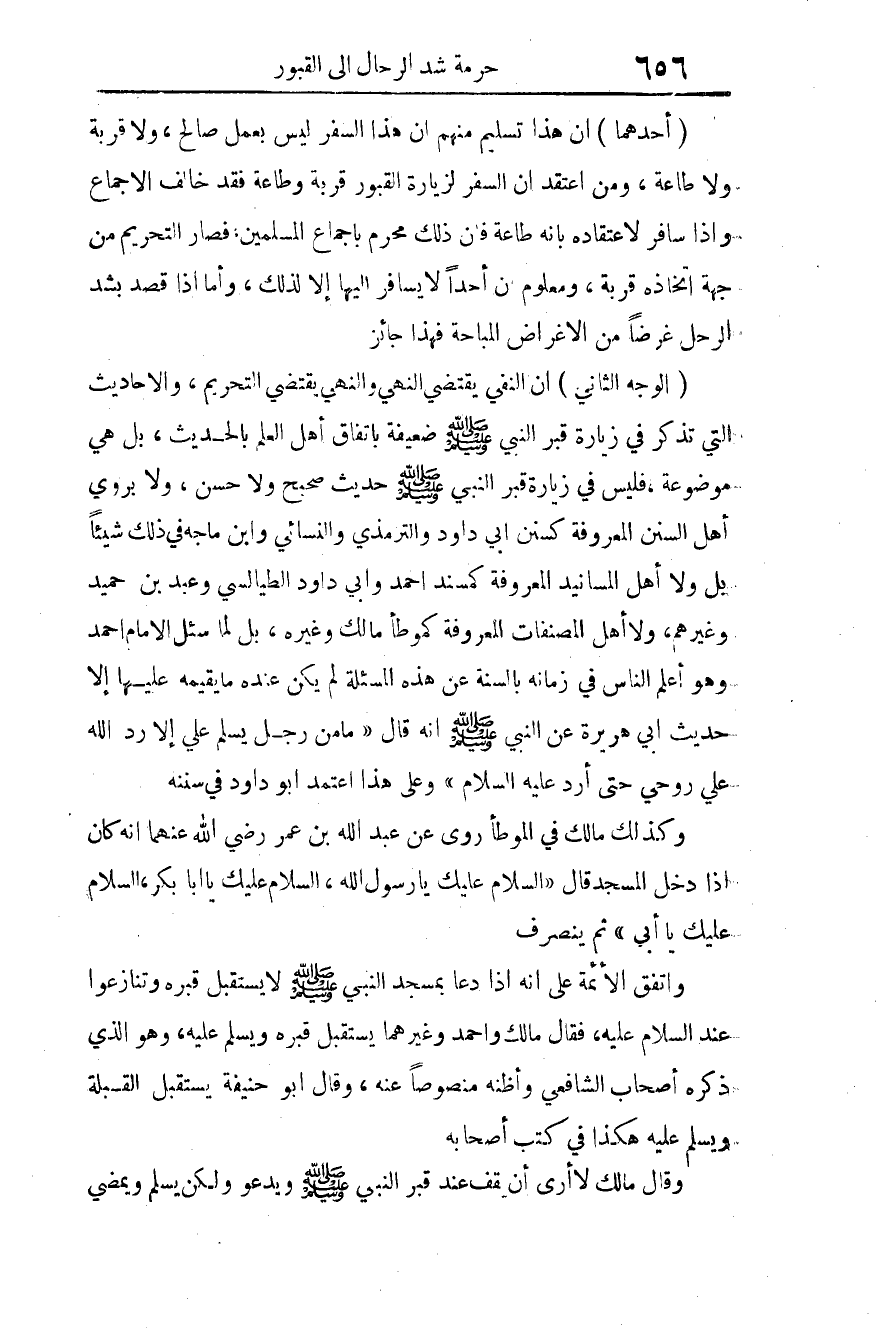 ٦٥٦ حرمة شد الرحال الى القبور
( أحدهما ) ان هذا تسليم منهم ان هذا السفر ليس بعمل صالح ، ولا قربة
ولا طاعة ، ومن اعتقد ان السفر لزيارة القبور قربة وطاعة فقد خالف الاجماع
واذا سافر لاعتقاده بانه طاعة فان ذلك محرم باجماع المسلمين، فصار التحريم من
جهة اتخاذه قربة ، ومعلوم ان أحداً لايسافر اليها إلا لذلك ، وأما اذا قصد بشد
الرحل غرضاً من الاغراض المباحة فهذا جائز
( الوجه الثاني ) ان النفي يقتضي النهي والنهي يقتضي التحريم ، والاحاديث
التي تذكر في زيارة قبر النبي ﷺ ضعيفة باتفاق أهل العلم بالحديث ، بل هي
موضوعة ،فليس في زيارة قبر النبي ﷺ حديث صحيح ولا حسن ، ولا يروي
أهل السنن المعروفة كسنن ابي داود والترمذي والنسائي وابن ماجه في ذلك شيئاً
بل ولا أهل المسانيد المعروفة كمسند احمد وابي داود الطيالسي وعبد بن حميد
وغيرهم، ولا أهل المصنفات المعروفة كموطأ مالك وغيره ، بل لما سئل الامام احمد
وهو أعلم الناس في زمانه بالسنة عن هذه المسئلة لم يكن عنده مايقيمه عليها إلا
حديث ابي هريرة عن النبي ﷺ انه قال « مامن رجل يسلم علي إلا رد الله
علي روحي حتى أرد عليه السلام » وعلى هذا اعتمد ابو داود في سننه
وكذلك مالك في الموطأ روى عن عبد الله بن عمر رضي الله عنهما انه كان
اذا دخل المسجد قال «السلام عليك يارسول الله ، السلام عليك ياابا بكر ،السلام
عليك يا أبي » ثم ينصرف
واتفق الأئمة على انه اذا دعا بمسجد النبي ﷺ لايستقبل قبره وتنازعوا
عند السلام عليه، فقال مالك واحمد وغيرهما يستقبل قبره ويسلم عليه، وهو الذي
ذكره أصحاب الشافعي وأظنه منصوصاً عنه ، وقال ابو حنيفة يستقبل القبلة
ويسلم عليه هكذا في كتب أصحابه
وقال مالك لا أرى أن يقف عند قبر النبي ﷺ ويدعو ولكن يسلم ويمضي